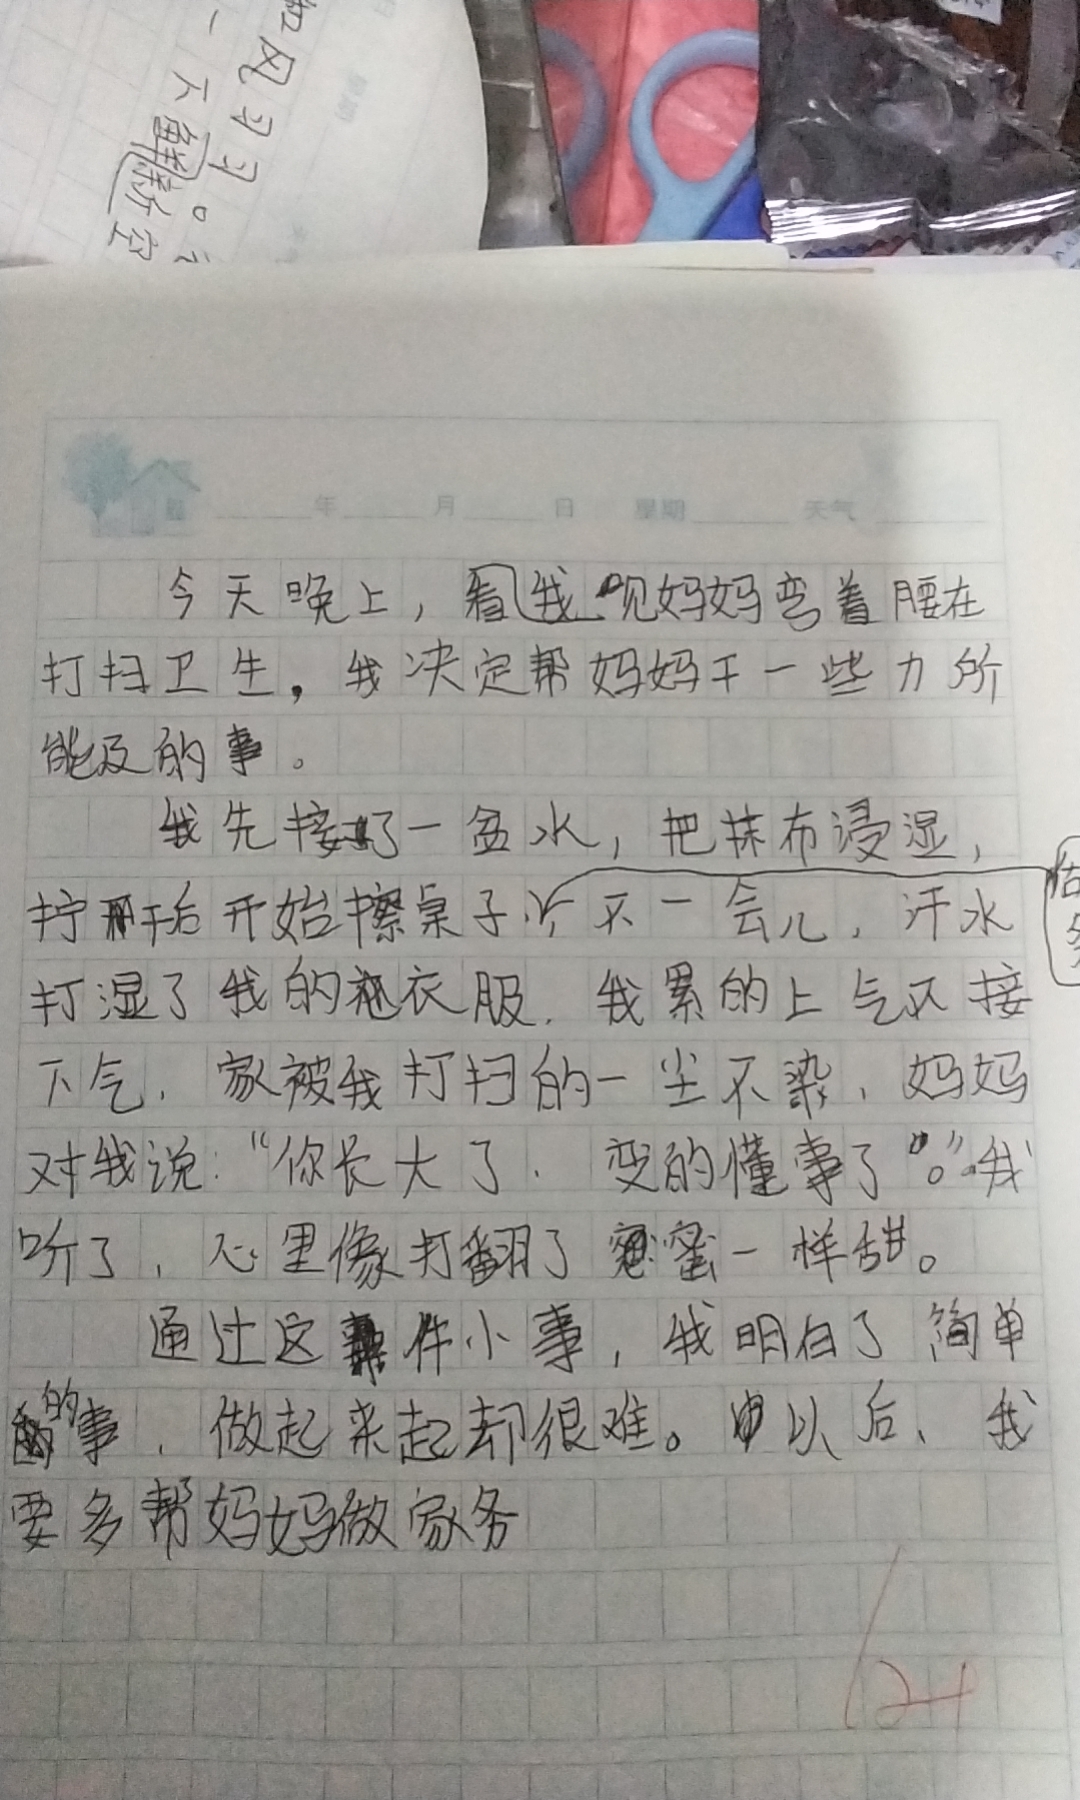 和风习习
一下鲜。
新空
年 月 日 星期 天气
今天晚上，看我见妈妈弯着腰在
打扫卫生，我决定帮妈妈干一些力所
能及的事。
我先接了一盆水，把抹布浸湿，
拧干后开始擦桌子，不一会儿，汗水
打湿了我的衣服，我累的上气不接
下气，家被我打扫的一尘不染，妈妈
对我说：“你长大了，变的懂事了。”我
听了，心里像打翻了蜜一样甜。
通过这件小事，我明白了简单
的事，做起来起却很难。以后，我
要多帮妈妈做家务